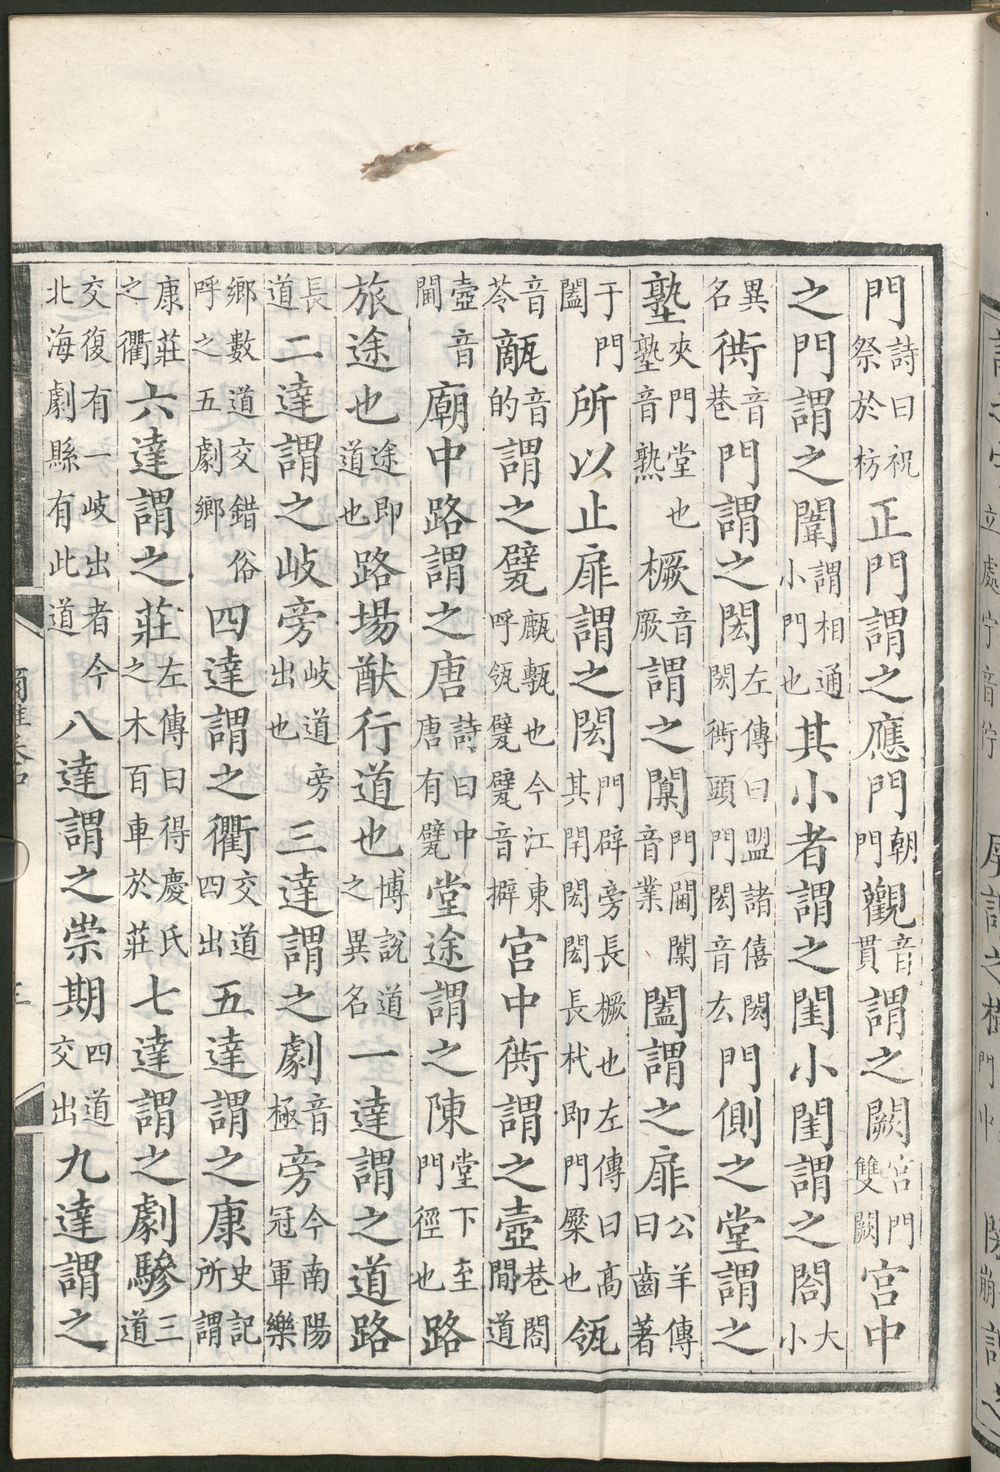 門詩曰祝祭於枋正門謂之應門朝門觀音貫謂之闕宮門雙闕宮中
之門謂之闈謂相通小門也其小者謂之閨小閨謂之閤大小
異名衖音巷門謂之閎左傳曰盟諸僖閎閎衖頭門閎音厷門側之堂謂之
塾夾門堂也塾音熟橛音厥謂之闑門閫闑音業闔謂之扉公羊傳曰齒著
于門闔所以止扉謂之閎門辟旁長橛也左傳曰高其閈閎閎長杙即門橜也瓴
音苓甋音的謂之甓㼾甎也今江東呼瓴甓甓音擗宮中衖謂之壼巷閤間道
壼音閫廟中路謂之唐詩曰中唐有甓堂途謂之陳堂下至門徑也路
旅途也途即道也路場猷行道也博說道之異名一達謂之道路
長道二達謂之岐旁岐道旁出也三達謂之劇音極旁今南陽冠軍樂
鄉數道交錯俗呼之五劇鄉四達謂之衢交道四出五達謂之康史記所謂
康莊之衢六達謂之莊左傳曰得慶氏之木百車於莊七達謂之劇驂三道
交復有一岐出者今北海劇縣有此道八達謂之崇期四道交出九達謂之